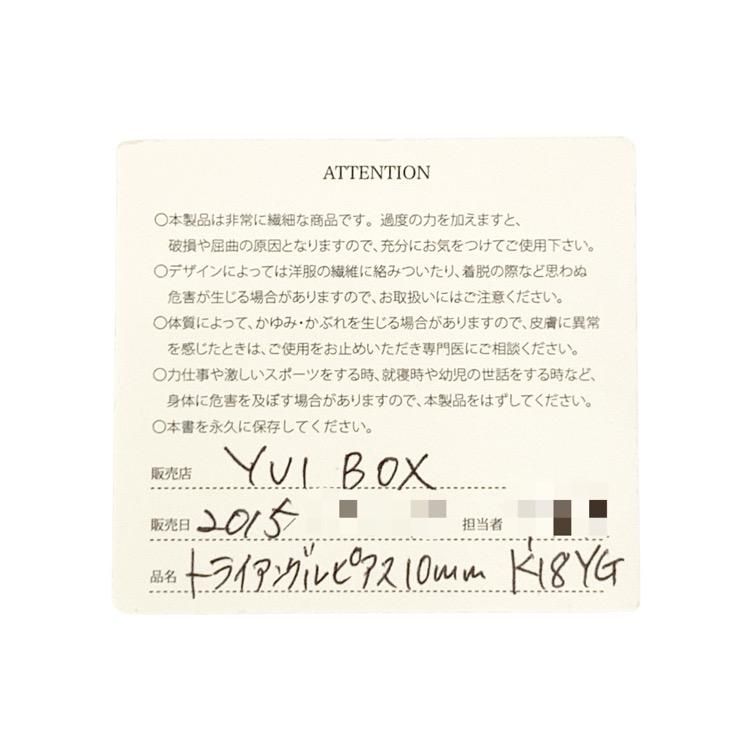 ATTENTION
○本製品は非常に繊細な商品です。過度の力を加えますと、
破損や屈曲の原因となりますので、充分にお気をつけてご使用下さい。
○デザインによっては洋服の繊維に絡みついたり、着脱の際など思わぬ
危害が生じる場合がありますので、お取扱いにはご注意ください。
○体質によって、かゆみ・かぶれを生じる場合がありますので、皮膚に異常
を感じたときは、ご使用をお止めいただき専門医にご相談ください。
○力仕事や激しいスポーツをする時、就寝時や幼児の世話をする時など、
身体に危害を及ぼす場合がありますので、本製品をはずしてください。
○本書を永久に保存してください。
販売店 YUI BOX
販売日 2015/ 担当者
品名 トライアングルピアス10mm K18YG